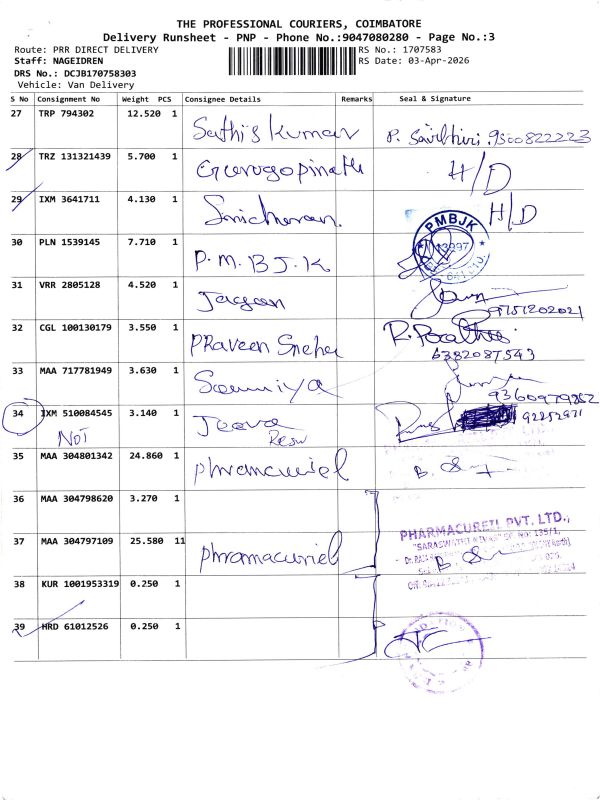 THE PROFESSIONAL COURIERS, COIMBATORE
Delivery Runsheet - PNP - Phone No.:9047080280 - Page No.:3
Route: PRR DIRECT DELIVERY RS No.: 1707583
Staff: NAGEIDREN RS Date: 03-Apr-2026
DRS No.: DCJB170758303
Vehicle: Van Delivery
S No Consignment No Weight PCS Consignee Details Remarks Seal & Signature
27 TRP 794302 12.520 1 Sathis Kumar P. 9500822223
28 TRZ 131321439 5.700 1 Gurugopinath H/D
29 IXM 3641711 4.130 1 H/D
30 PLN 1539145 7.710 1 P.M.B.J.K PMBJK
31 VRR 2805128 4.520 1 Jagan 9751202021
32 CGL 100130179 3.550 1 PRaveen Sneha 6382087543
33 MAA 717781949 3.630 1 Soumiya 9360979262
34 IXM 510084545 3.140 1 Jeeva 92252971
NOT
35 MAA 304801342 24.860 1 phramacuriel B.
36 MAA 304798620 3.270 1
37 MAA 304797109 25.580 11 phramacuriel B.
PHARMACUREIL PVT. LTD.,
38 KUR 1001953319 0.250 1
39 HRD 61012526 0.250 1